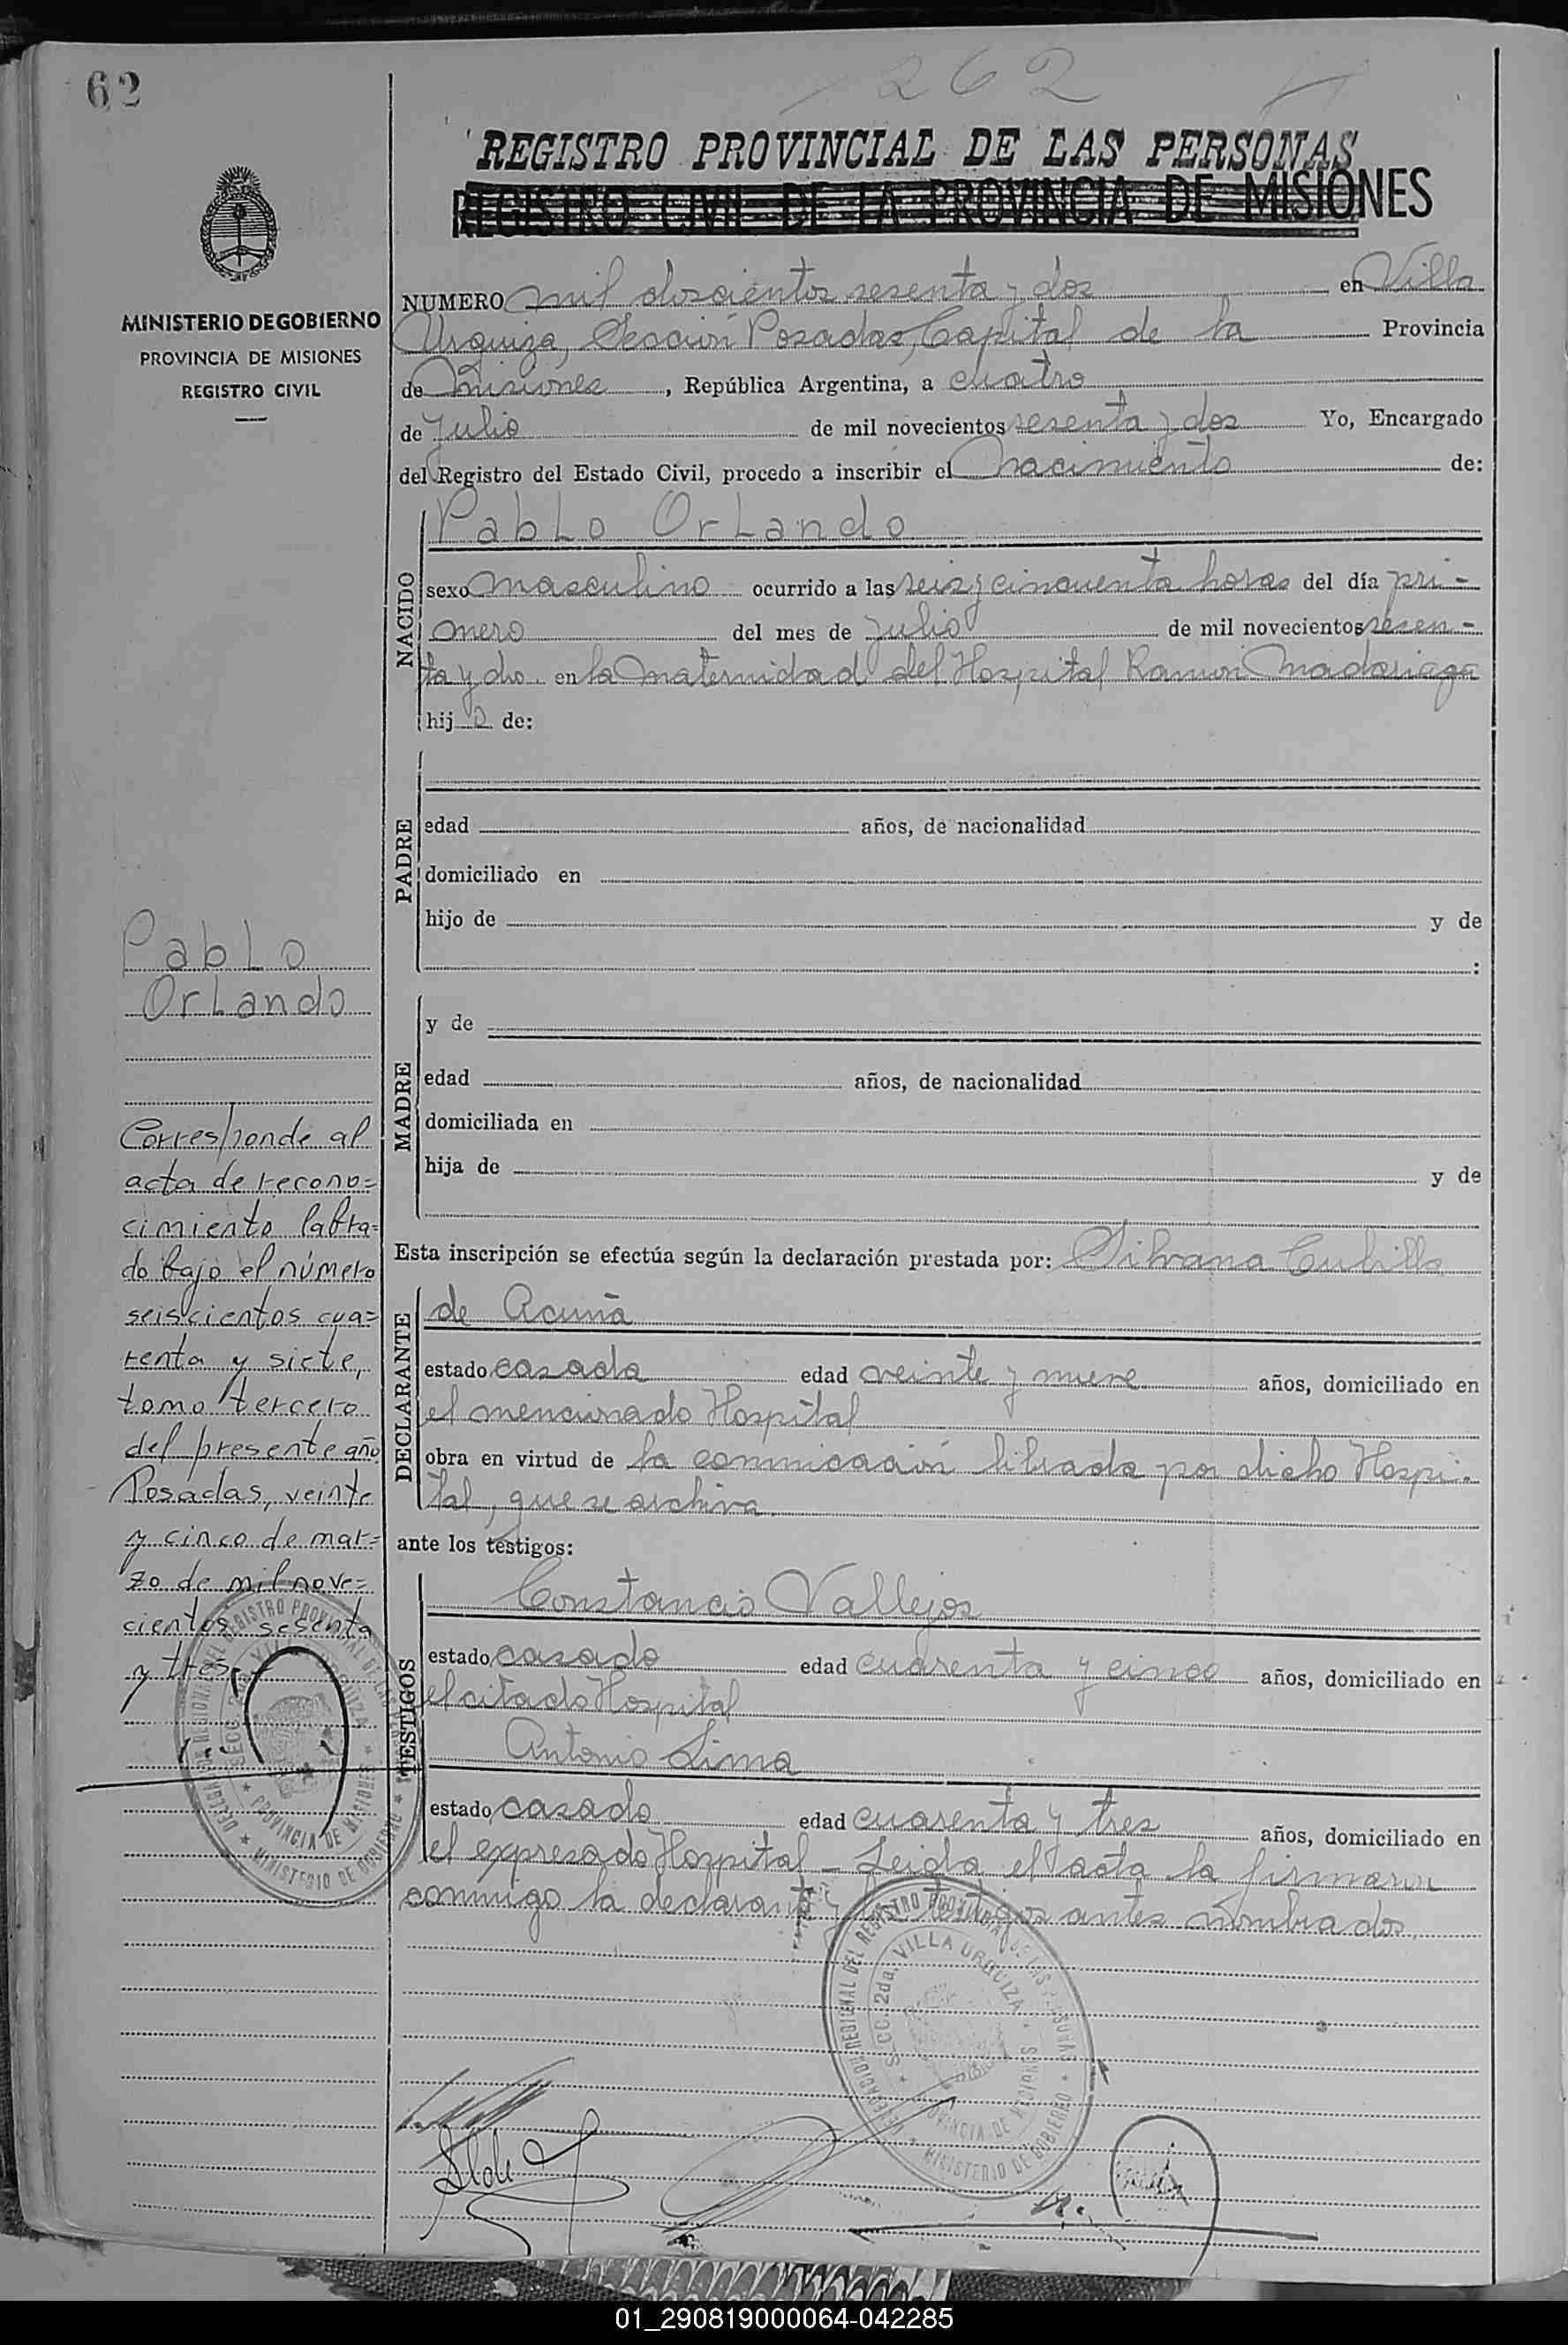 62
262
REGISTRO PROVINCIAL DE LAS PERSONAS
REGISTRO CIVIL DE LA PROVINCIA DE MISIONES
MINISTERIO DE GOBIERNO
PROVINCIA DE MISIONES
REGISTRO CIVIL
NUMERO mil doscientos sesenta y dos en Villa
Urquiza, Sección Posadas, Capital de la Provincia
de Misiones, República Argentina, a cuatro
de Julio de mil novecientos sesenta y dos Yo, Encargado
del Registro del Estado Civil, procedo a inscribir el nacimiento de:
NACIDO
PabLo OrLando
sexo masculino ocurrido a las seis y cincuenta horas del día pri-
mero del mes de Julio de mil novecientos sesen-
ta y dos en la Maternidad del Hospital Ramón Madariaga
hijo de:
PADRE
edad años, de nacionalidad
domiciliado en
hijo de y de
:
MADRE
y de
edad años, de nacionalidad
domiciliada en
hija de y de
Esta inscripción se efectúa según la declaración prestada por: Silvana Cubilla
DECLARANTE
de Acuña
estado casada edad veinte y nueve años, domiciliado en
el mencionado Hospital
obra en virtud de la comunicación librada por dicho Hospi-
tal, que se archiva.
ante los testigos:
TESTIGOS
Constancio Vallejos
estado casado edad cuarenta y cinco años, domiciliado en
el citado Hospital
Antonio Lima
estado casado edad cuarenta y tres años, domiciliado en
el expresado Hospital - Leida el acta la firmaron
conmigo la declarante y los testigos antes nombrados.
PabLo
OrLando
Corresponde al
acta de recono=
cimiento labra=
do bajo el número
seiscientos cua=
renta y siete,
tomo tercero
del presente año
Posadas, veinte
y cinco de mar=
zo de mil nove=
cientos sesenta
y tres.
DELEGACION REGIONAL DEL REGISTRO PROVINCIAL DE LAS PERSONAS
SECC. 2da. VILLA URQUIZA
PROVINCIA DE MISIONES
MINISTERIO DE GOBIERNO
DELEGACION REGIONAL DEL REGISTRO PROVINCIAL DE LAS PERSONAS
SECC. 2da. VILLA URQUIZA
PROVINCIA DE MISIONES
MINISTERIO DE GOBIERNO
01_290819000064-042285